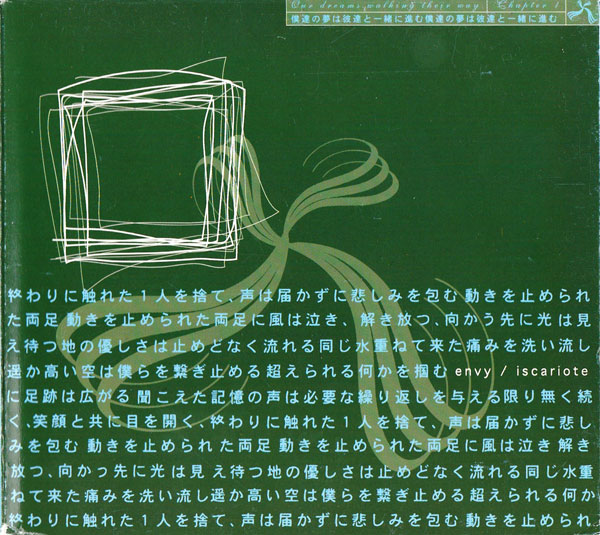 Our dreams, walking their way | Chapter 1
僕達の夢は彼達と一緒に進む僕達の夢は彼達と一緒に進む
終わりに触れた1人を捨て、声は届かずに悲しみを包む 動きを止められ
た両足 動きを止められた両足に風は泣き、解き放つ、向かう先に光は見
え待つ地の優しさは止めどなく流れる同じ水重ねて来た痛みを洗い流し
遥か高い空は僕らを繋ぎ止める 超えられる何かを掴む envy / iscariote
に足跡は広がる 聞こえた記憶の声は必要な繰り返しを与える限り無く続
く、笑顔と共に目を開く、終わりに触れた1人を捨て、声は届かずに悲し
みを包む 動きを止められた両足 動きを止められた両足に風は泣き 解き
放つ、向かっ先に光は見え待つ地の優しさは止めどなく流れる同じ水重
ねて来た痛みを洗い流し遥か高い空は僕らを繋ぎ止める超えられる何か
終わりに触れた1人を捨て、声は届かずに悲しみを包む 動きを止められ